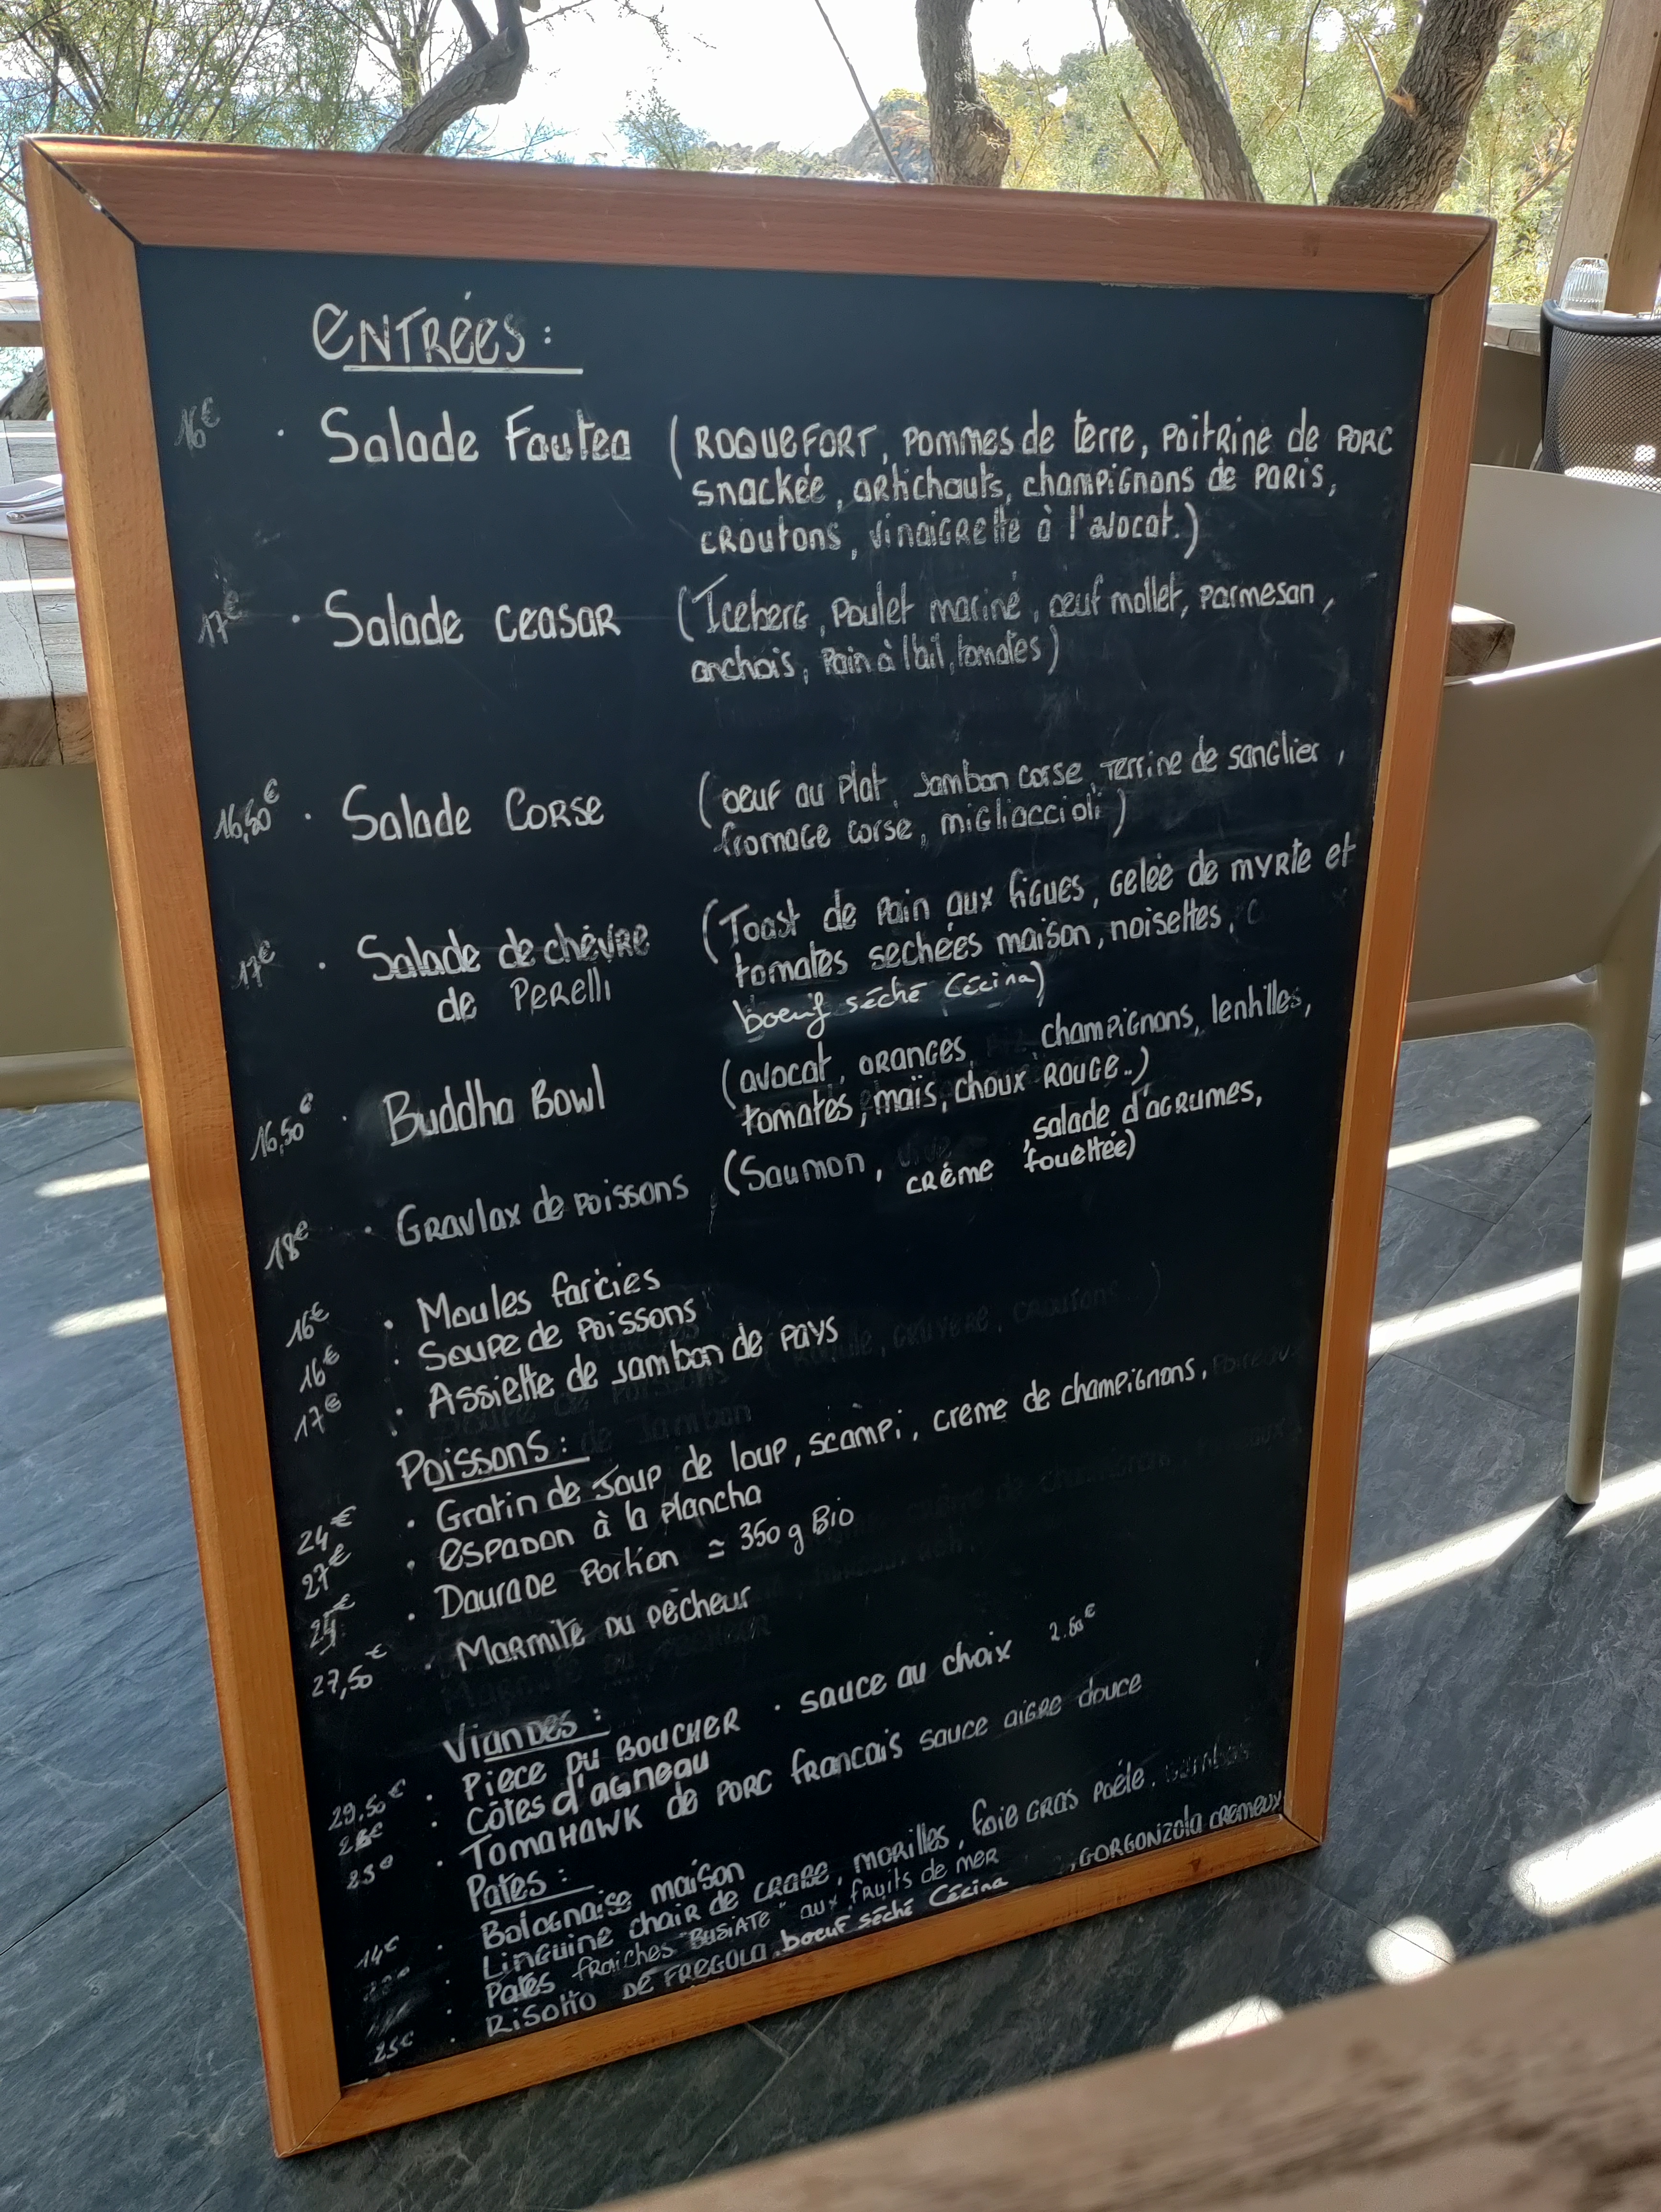 ENTRÉES :
16€ · Salade Fautea (ROQUEFORT, POMMES de terre, POITRINE de PORC
snackée, artichauts, champignons de PARIS,
CROUTONS, VINAIGRETTE à l'avocat.)
17€ · Salade CEASAR (Iceberg, Poulet mariné, œuf mollet, Parmesan,
anchois, Pain à l'ail, tomates)
16,50€ · Salade CORSE (oeuf au Plat, Jambon corse, Terrine de sanglier,
fromage corse, migliaccioli)
17€ · Salade de chèvre (Toast de Pain aux figues, Gelée de MYRTE et
de Perelli tomates sechées maison, noisettes,
boeuf séché Cécina)
16,50€ · Buddha Bowl (avocat, ORANGES, champignons, lentilles,
tomates, maïs, choux ROUGE..)
18€ · Gravlax de Poissons (Saumon, salade d'agrumes,
crème fouettée)
16€ · Moules farcies
16€ · Soupe de Poissons
17€ · Assiette de Jambon de PAYS
Poissons :
24€ · Gratin de Joup de loup, scampi, creme de champignons,
27€ · ESPADON à la Plancha
€ · Daurade Portion ≃ 350 g Bio
27,50€ · MARMITE DU Pêcheur
VIANDES :
29.50€ · PIECE DU BOUCHER · sauce au choix €
€ · Côtes d'agneau
25€ · TOMAHAWK de PORC francais sauce aigre douce
Pates :
14€ · Bolognaise maison
· Linguine chair de CRABE, MORILLES, foie GRAS Poêle.
· Pates fraiches "BUSIATE" aux fruits de MER
25€ · Risotto DE FREGOLA, boeuf séché Cécina, GORGONZOLA CREMEUX